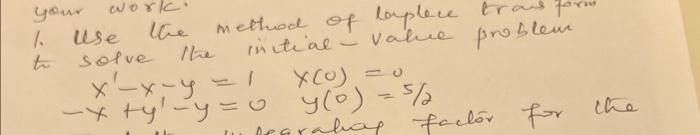 your work.
1. Use the method of laplace transform
to solve the initial-value problem
x'-x-y = 1 x(0) = 0
-x+y'-y = 0 y(0) = 5/2
factor for the